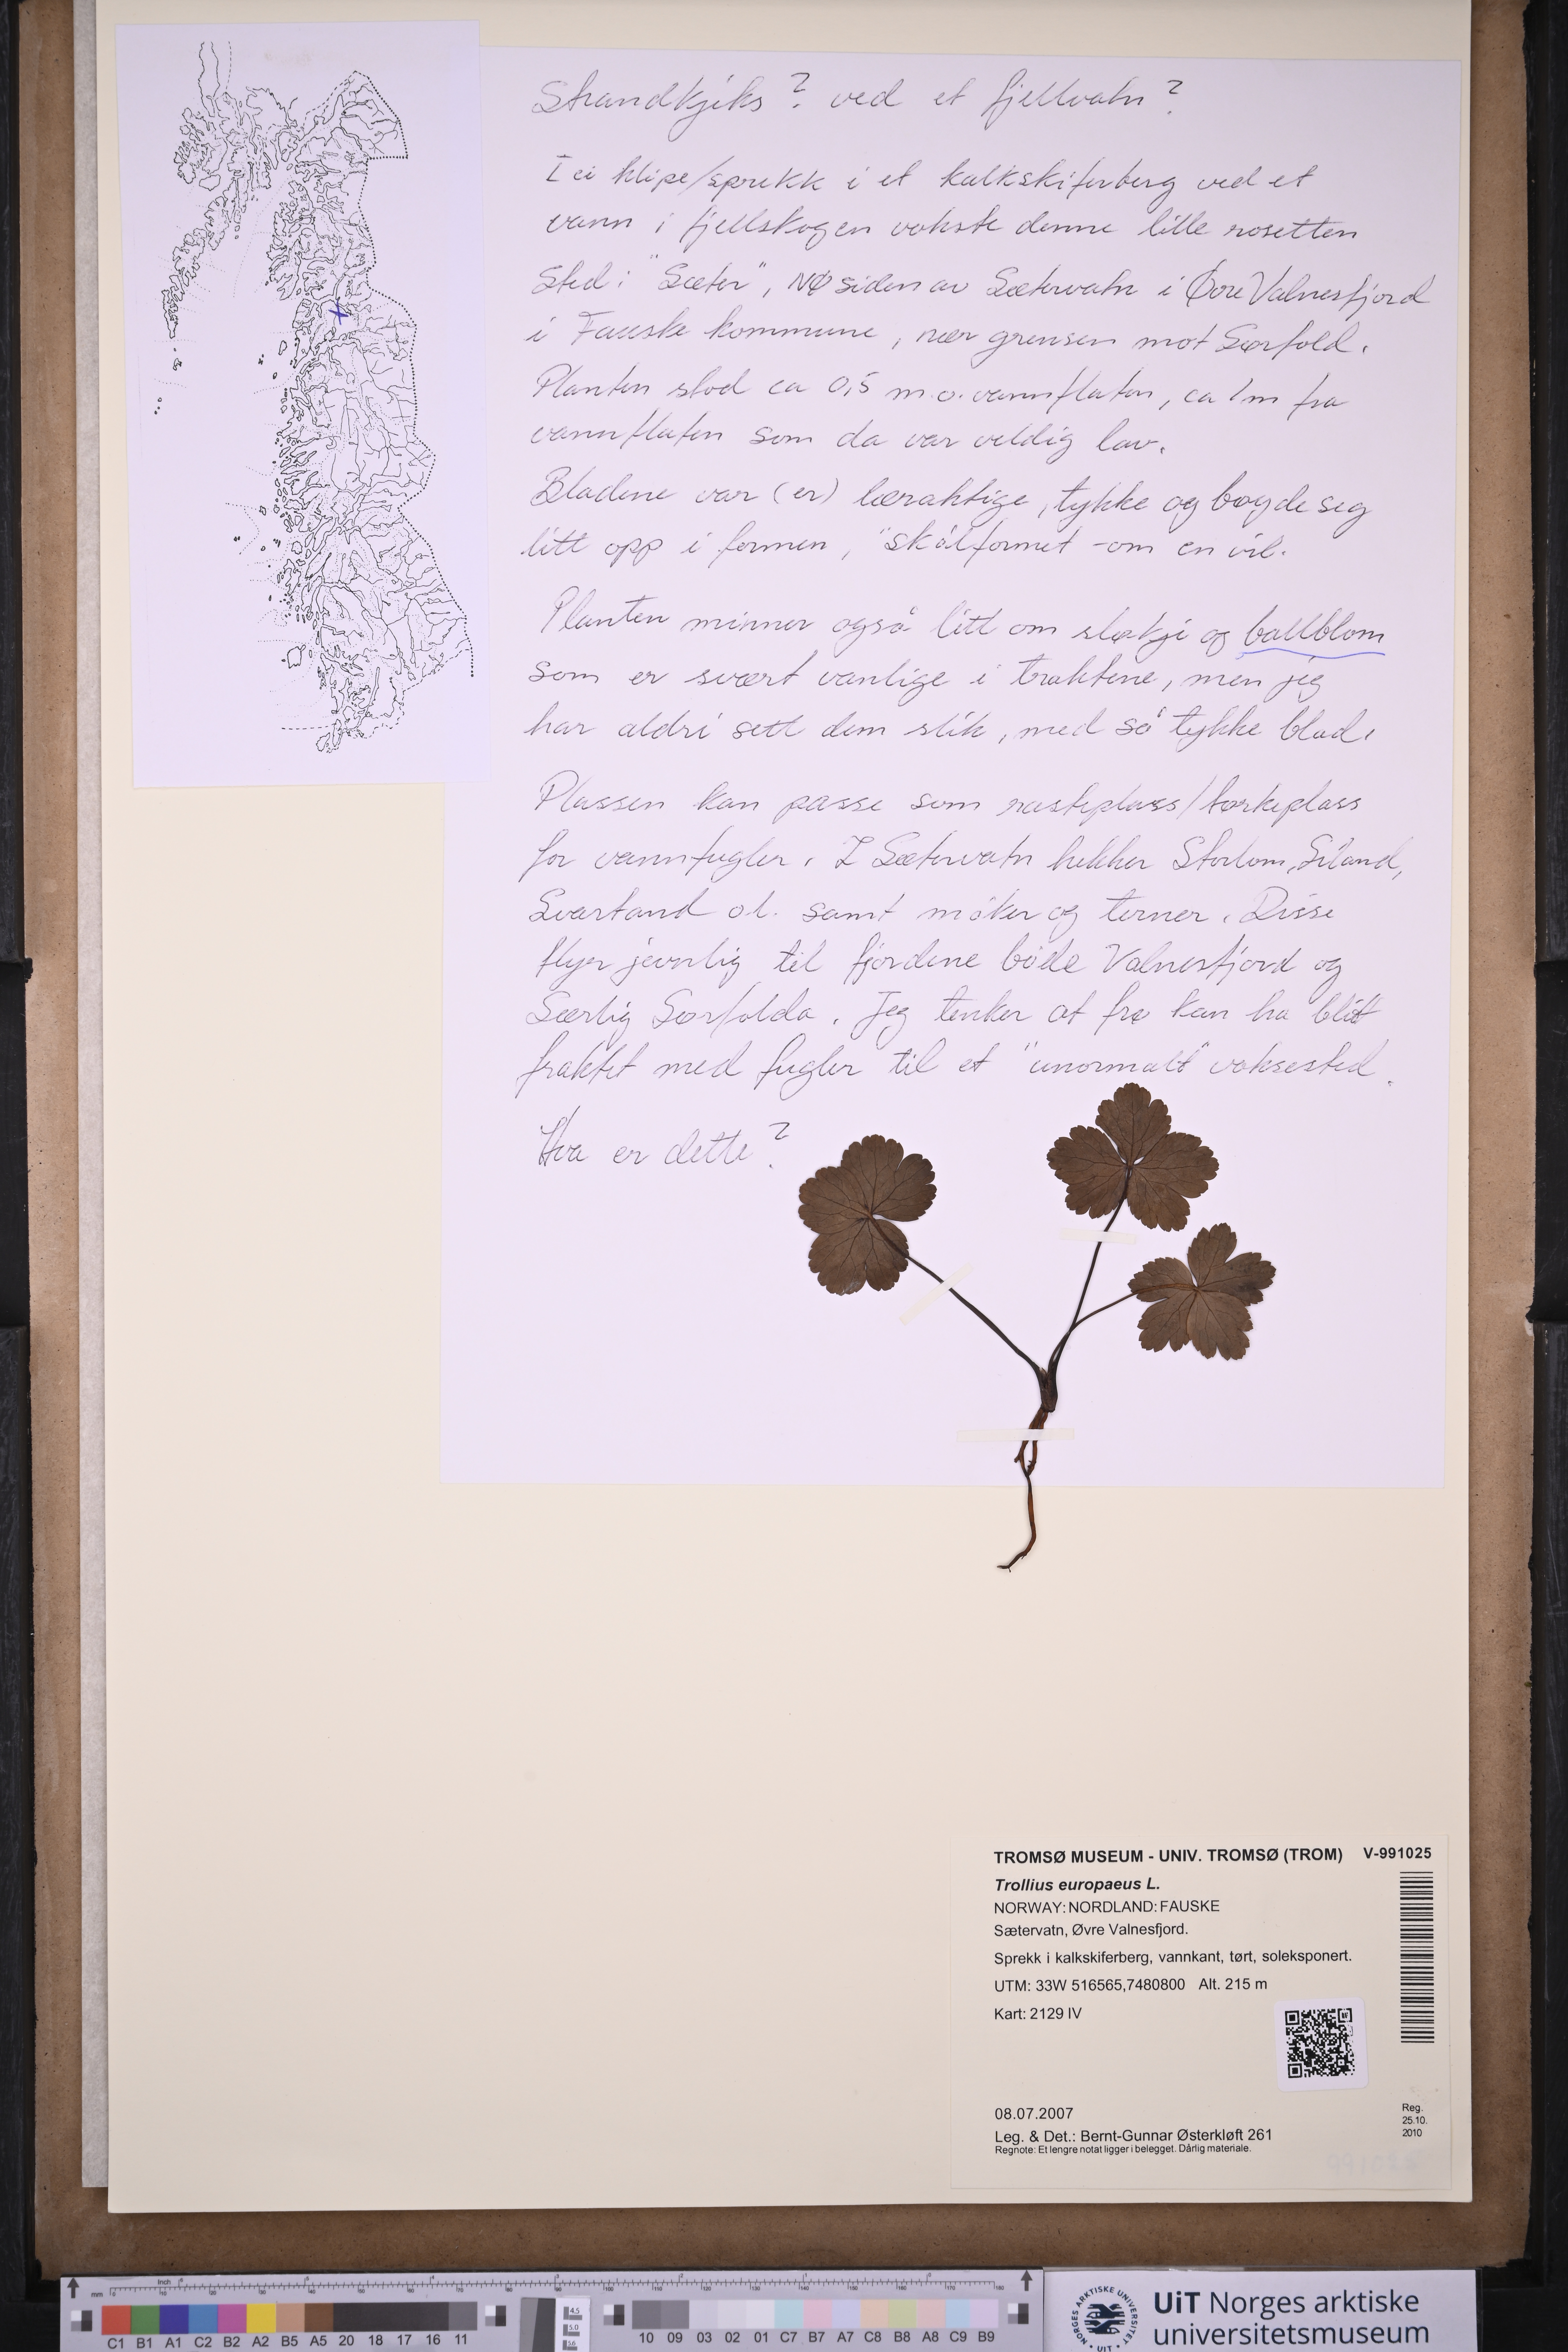 Strandkjeks? ved et fjellvatn?
I ei klipe/sprekk i et kalkskiferberg ved et
vann i fjellskogen vokste denne lille rosetten
Sted: "Sæter", NØ siden av Sætervatn i Øvre Valnesfjord
i Fauske kommune, nær grensen mot Sørfold.
Planten stod ca 0,5 m.o. vannflaten, ca 1m fra
vannflaten som da var veldig lav.
Bladene var (er) læraktige, tykke og bøyde seg
litt opp i formen, "skålformet -om en vil.
Planten minner også litt om sløkje og ballblom
som er svært vanlige i traktene, men jeg
har aldri sett dem slik, med så tykke blad.
Plassen kan passe som rasteplass/tørkeplass
for vannfugler. I Sætervatn hekker Storlom, Siland,
Svartand o.l. samt måker og terner. Disse
flyr jevnlig til fjordene både Valnesfjord og
Særlig Sørfolda. Jeg tenker at frø kan ha blitt
fraktet med fugler til et "unormalt" voksested.
Hva er dette?
TROMSØ MUSEUM - UNIV. TROMSØ (TROM) V-991025
Trollius europaeus L.
NORWAY: NORDLAND: FAUSKE
Sætervatn, Øvre Valnesfjord.
Sprekk i kalkskiferberg, vannkant, tørt, soleksponert.
UTM: 33W 516565,7480800 Alt. 215 m
Kart: 2129 IV
08.07.2007
Leg. & Det.: Bernt-Gunnar Østerkløft 261
Regnote: Et lengre notat ligger i belegget. Dårlig materiale.
Reg.
25.10.
2010
mm Inch
C1 B1 A1 C2 B2 A2 B5 A5 20 18 17 16 11 10 09 03 02 01 C7 B7 A7 C8 B8 A8 C9 B9
4.5
5.0
5.6
NORGES ARKTISKE UNIVERSITET · UiT ·
UiT Norges arktiske
universitetsmuseum